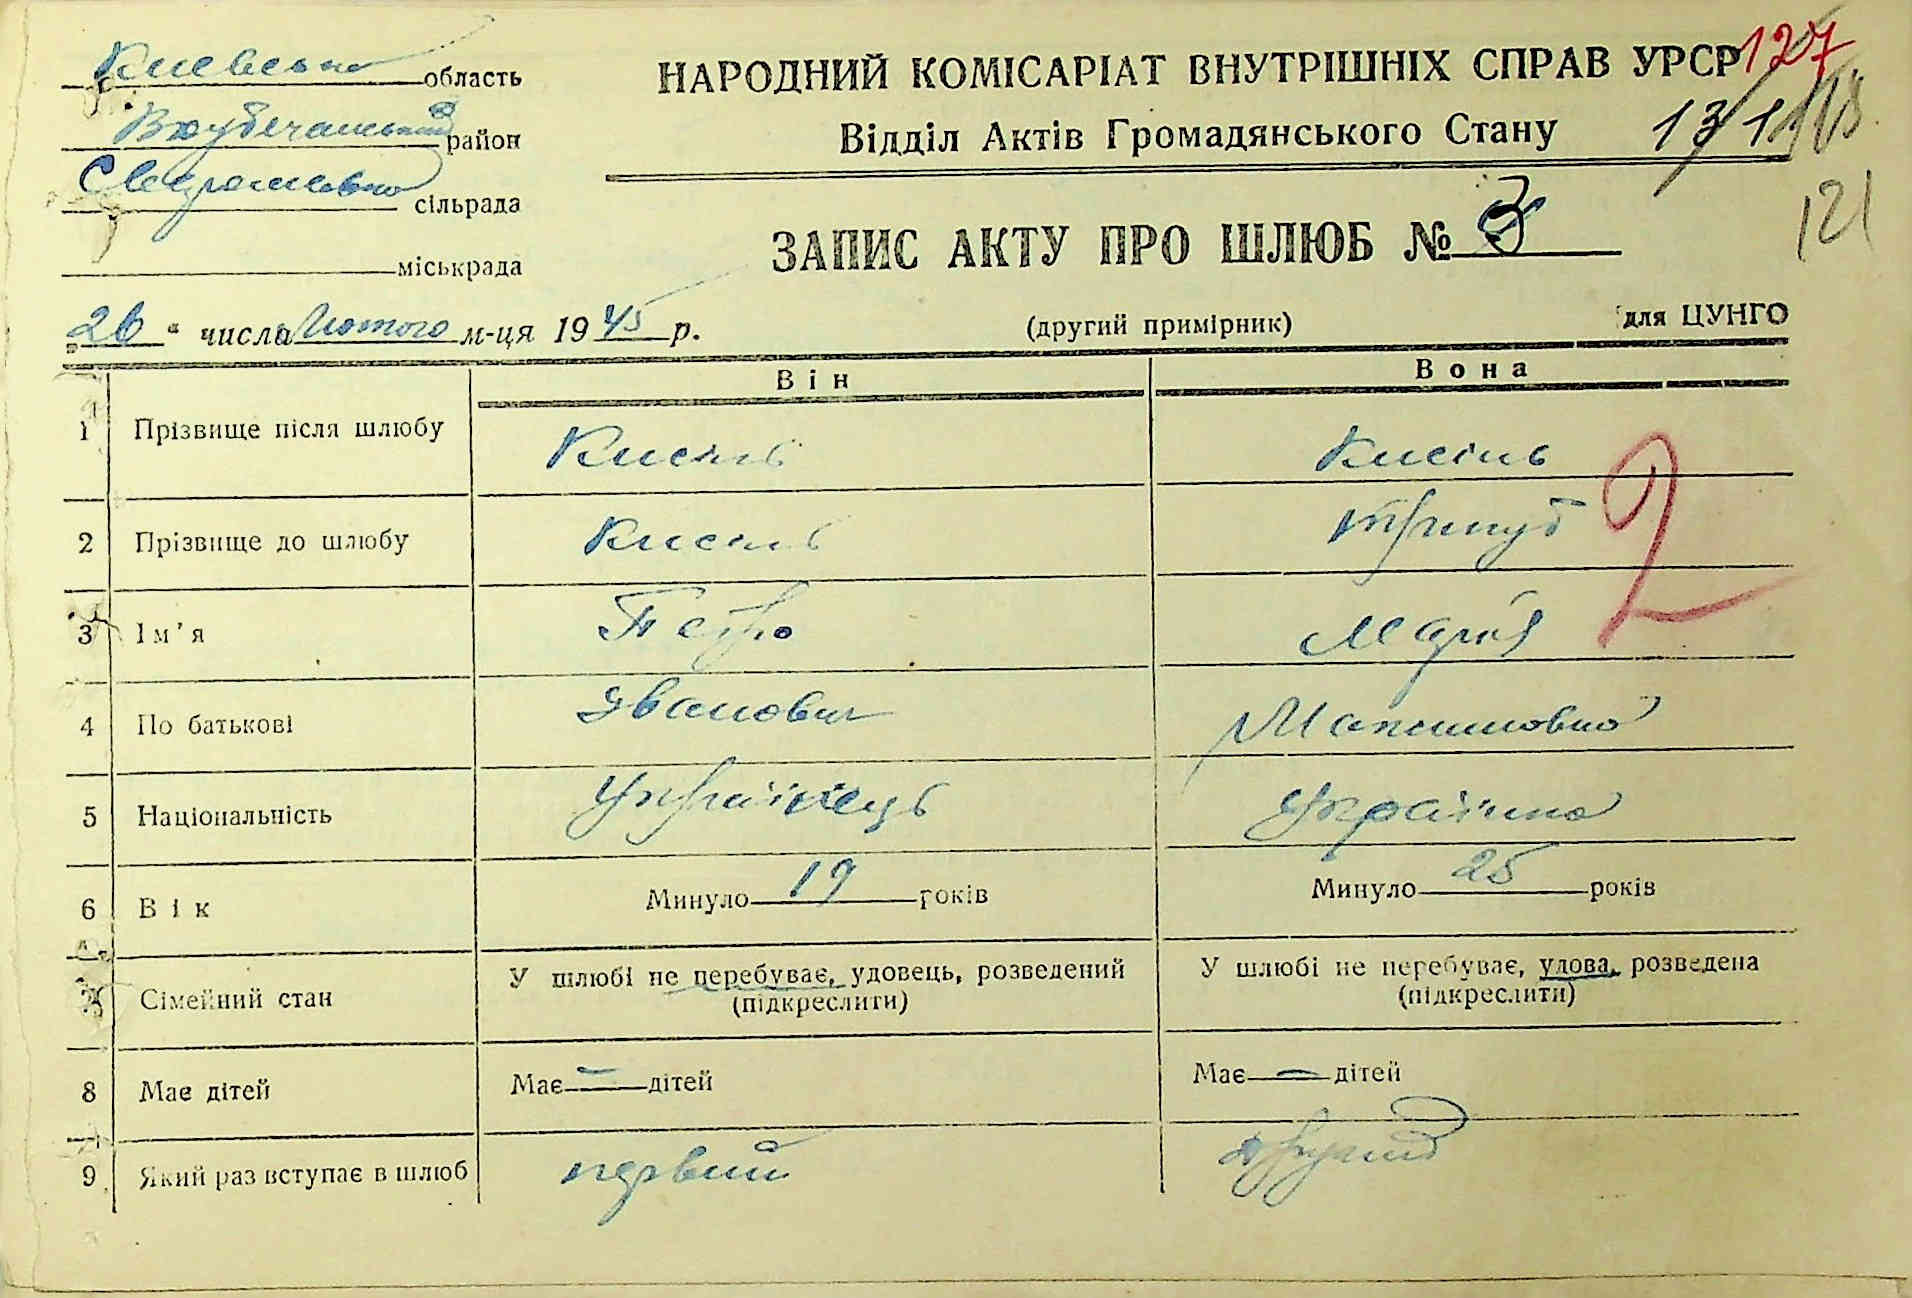 Киевська область
район
сільрада
міськрада
НАРОДНИЙ КОМІСАРІАТ ВНУТРІШНІХ СПРАВ УРСР
127
Відділ Актів Громадянського Стану
131
121
ЗАПИС АКТУ ПРО ШЛЮБ № 3
26 " числа Лютого м-ця 1945 р.
(другий примірник)
для ЦУНГО
Він
Вона
1 Прізвище після шлюбу Кисіль Кисіль
2
2 Прізвище до шлюбу Кисіль Трипуб
3 Ім'я Петро Марія
4 По батькові Іванович Максимовна
5 Національність Українець Українка
6 Вік Минуло 19 років Минуло 25 років
7 Сімейний стан У шлюбі не перебуває, удовець, розведений (підкреслити) У шлюбі не перебуває, удова, розведена (підкреслити)
8 Має дітей Має — дітей Має — дітей
9 Який раз вступає в шлюб первий другий